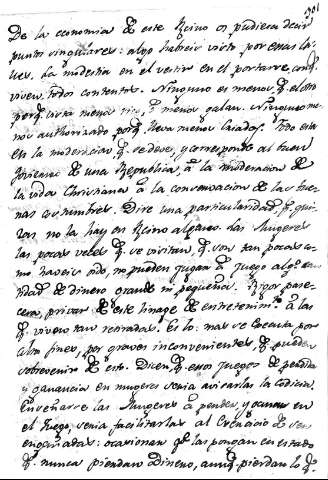 De la economia de este Reino os pudiera decir
puntos singulares: algo habreis visto por esas ca-
lles. La modestia en el vestir en el portarse, con q.
viven todos contentos. Ninguno es menos q. el otro
porq. vista menos rico, ò menos galan. Ninguno me-
nos authorizado porq. lleva menos Criados. Todo esta
en la moderacion, q. se deve, y corresponde al buen
govierno de una Republica, à la moderacion de
la vida Christiana à la conservacion de las bue-
nas costumbres. Dire una particularidad, q. qui-
zas no la hay en Reino alguno. Las Mugeres
las pocas veces q. se visitan, q. son tan pocas co-
mo haveis oido, no pueden jugar à juego alg.o can-
tidad de dinero grande ni pequeña. Rigor pare-
cera privar de este linage de entretenim.to à las
q. viven tan retiradas. Es lo: mas se executa por
altos fines, por graves inconvenientes, q. pueden
sobrevenir de esto. Dicen q. esos juegos de perdida
y ganancia en mugeres seria avivarlas la codicia.
Enseñarse las Mugeres à perder, y ganar en
el juego, seria facilitarlas al exercicio de ser
engañadas: ocasionar q. las pongan en estado
q. nunca pierdan Dinero, aunq. pierdan lo q.